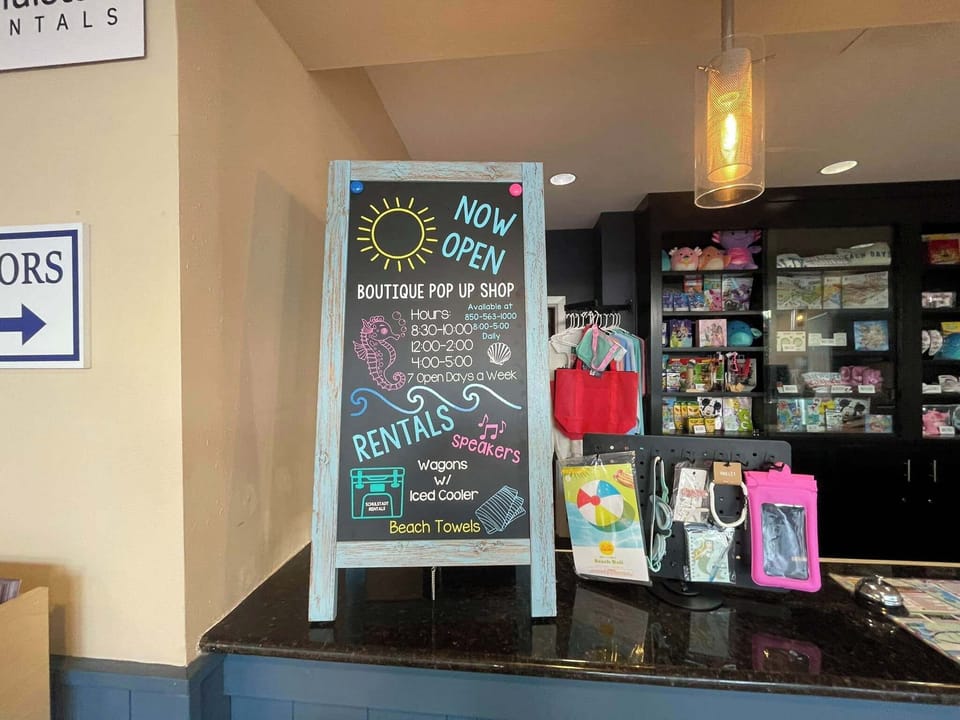 NTALS
ORS
NOW
OPEN
BOUTIQUE POP UP SHOP
Hours:
8:30-10:00
12:00-2:00
4:00-5:00
7 Open Days a Week
Available at
850-563-1000
8:00-5:00
Daily
RENTALS
speakers
Wagons
w/
Iced Cooler
SCHULSTADT
RENTALS
Beach Towels
Beach Ball